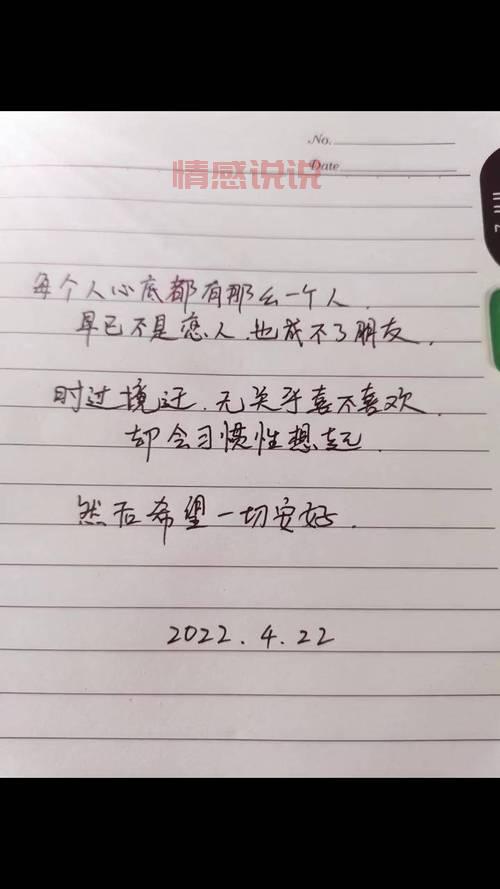 No.
Date
情感说说
每个人心底都有那么一个人.
早已不是恋人.也成不了朋友.
时过境迁.无关乎喜不喜欢.
却会习惯性想起.
然后希望一切安好.
2022.4.22